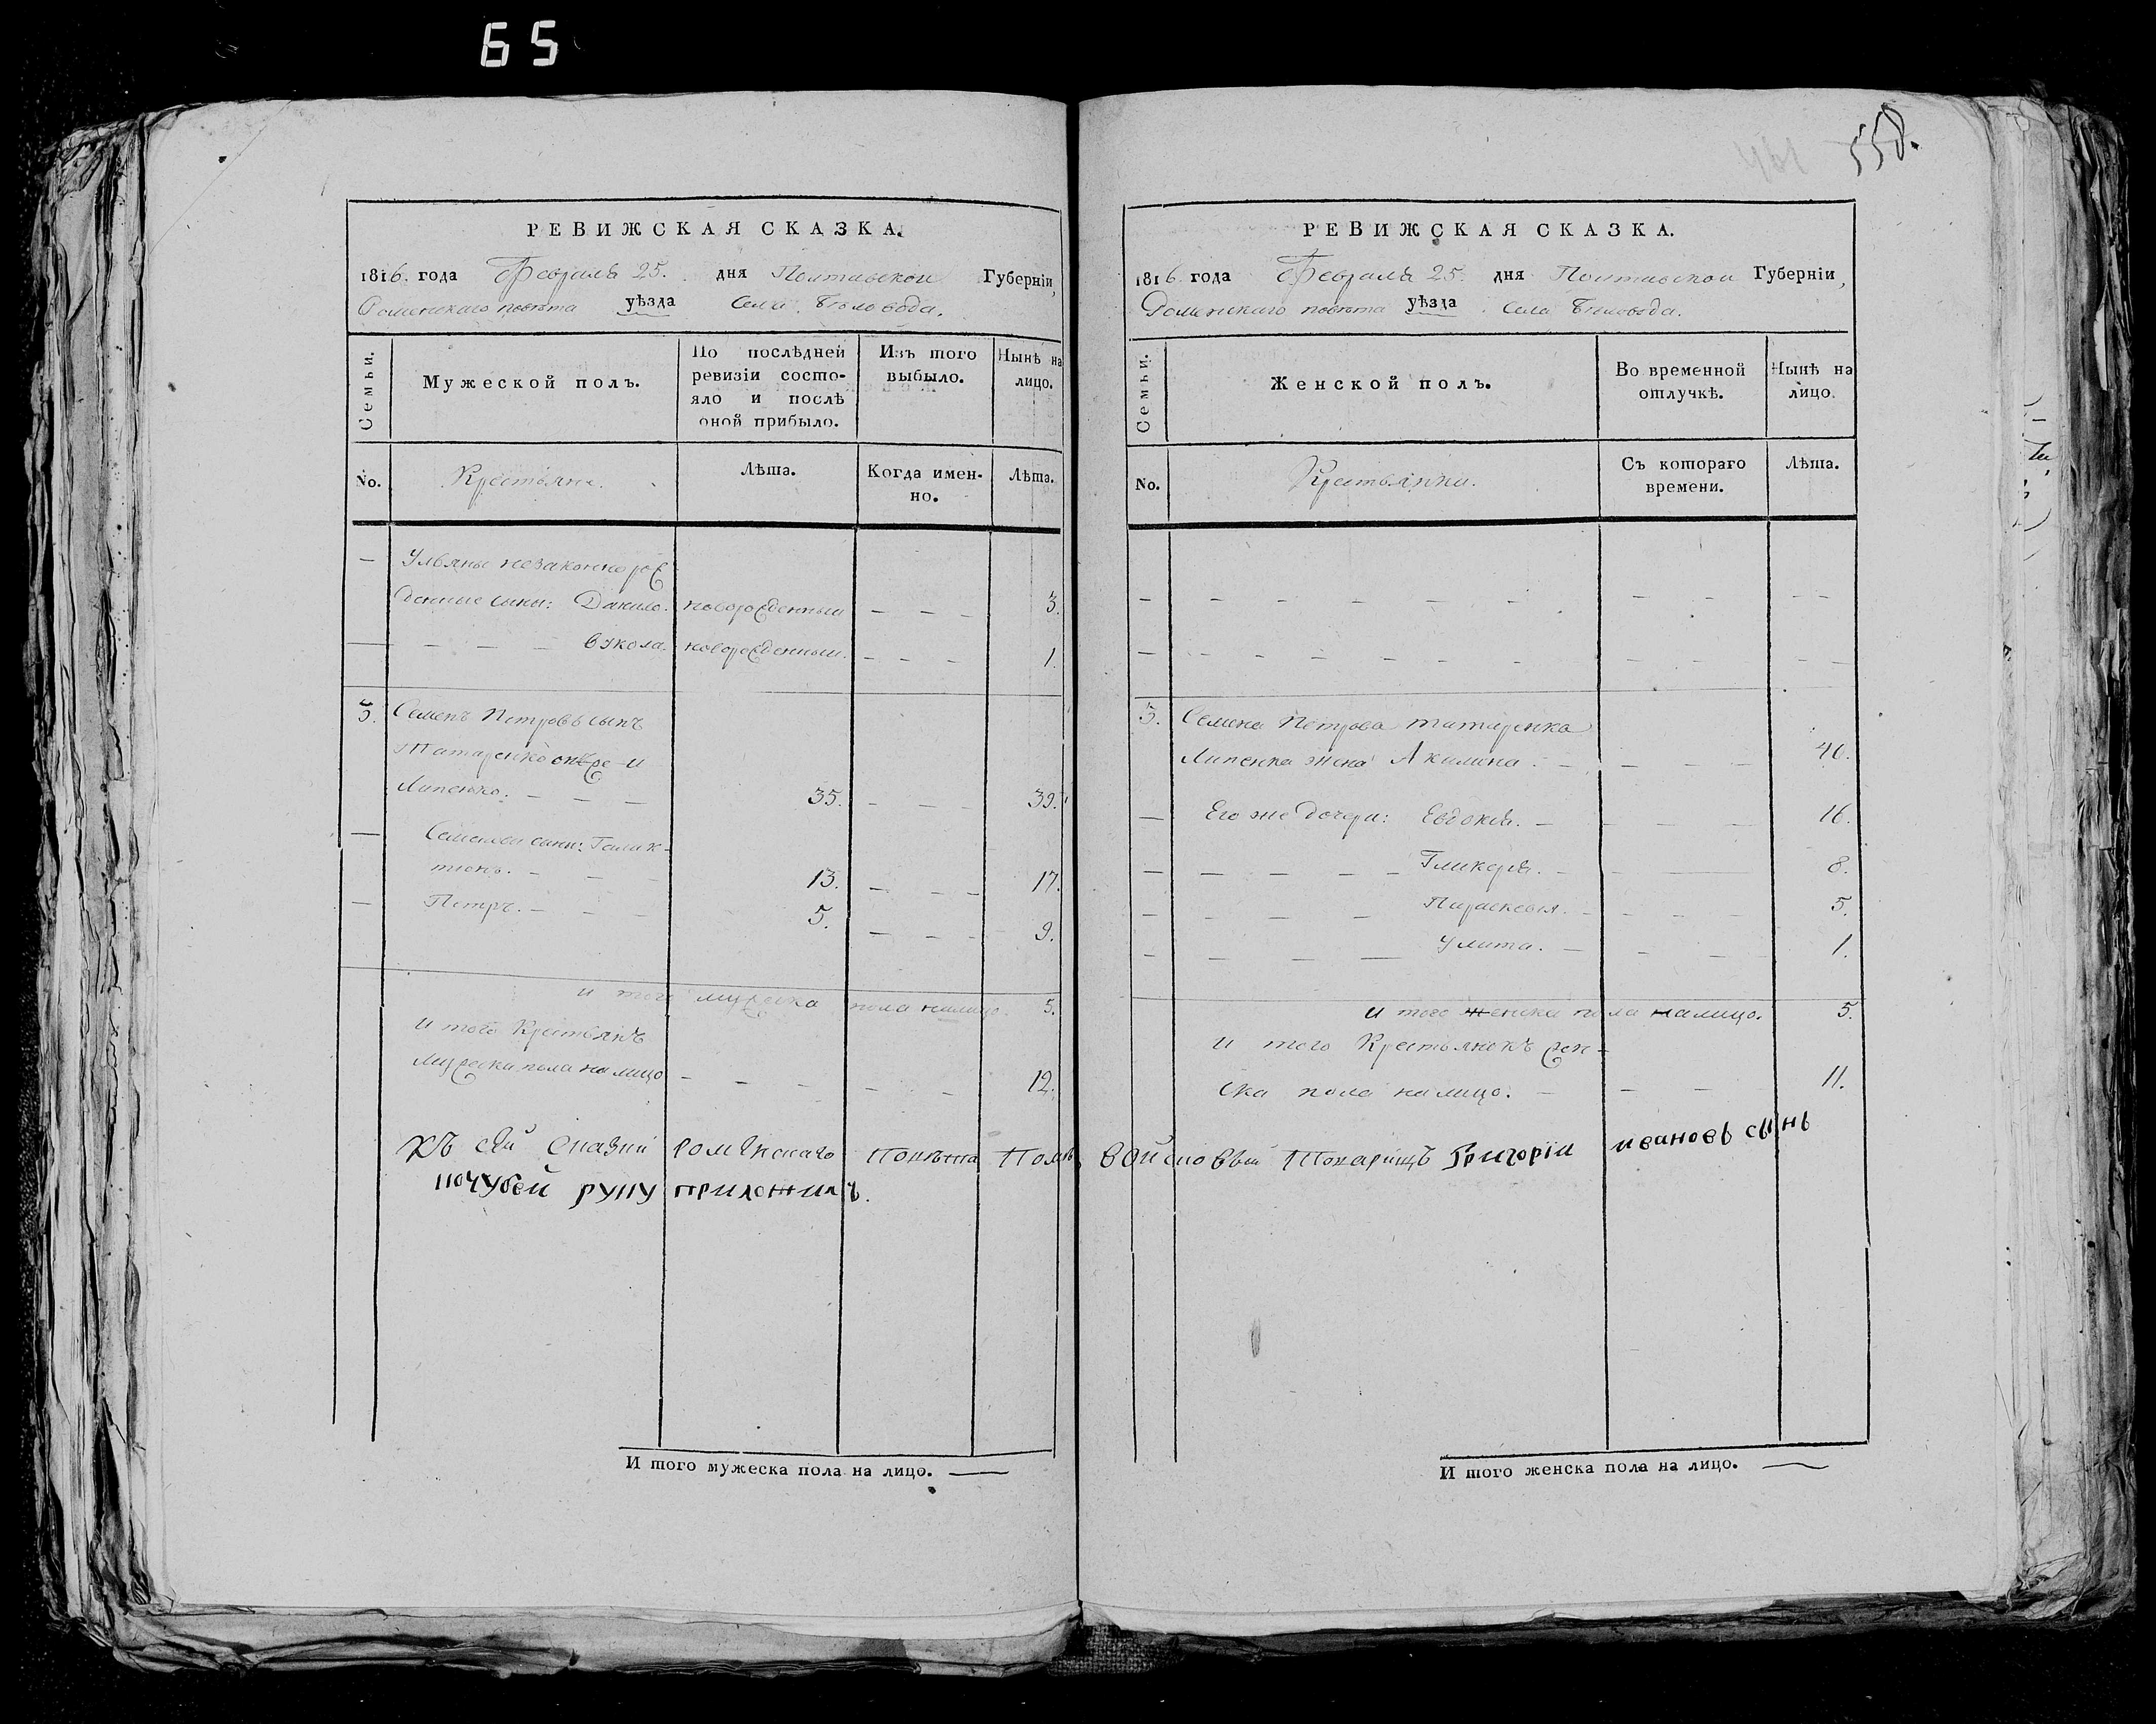 65
558.
461
РЕВИЖСКАЯ СКАЗКА.
1816. года Февраля 25. дня Полтавской Губерніи,
Роменскаго повѣта уѣзда Села Бѣловода.
Семьи.
Мужеской полъ.
По послѣдней ревизіи состояло и послѣ оной прибыло.
Изъ того выбыло.
Нынѣ на лицо.
No.
Крестьяне.
Лѣта.
Когда именно.
Лѣта.
— Ульяны незаконнорож
денные сыны: Данило. новорожденный — — — 3.
— — — — Вукола. новорожденный. — — — 1.
5. Семенъ Петровъ сынъ
Татаренко онже и
Липенко. — — — 35. — — — 39.
— Семеновы сыны: Галак-
тіонъ. — — — 13. — — — 17.
— Петръ. — — — 5. — — — 9.
и того мужеска пола налицо. 5.
И того Крестьянъ
мужеска пола налицо — — — — — 12.
Къ сей сказки роменскаго повѣта Пом
почубей руку приложилъ.
И того мужеска пола на лицо. —
РЕВИЖСКАЯ СКАЗКА.
1816 года Февраля 25. дня Полтавской Губерніи,
Роменскаго повѣта уѣзда Села Бѣловода.
Семьи.
Женской полъ.
Во временной отлучкѣ.
Нынѣ на лицо.
No.
Крестьянки.
Съ котораго времени.
Лѣта.
5. Семена Петрова татаренка
Липенка жена Акилина. — — — — 40.
— Его же дочери: Евдокія. — — — — 16.
— — — — — — Гликерія. — — — 8.
— — — — — Параскевія. — — — — 5.
— — — — Улита. — — — 1.
и того женска пола налицо. 5.
И того Крестьянокъ жен-
ска пола налицо. — — — 11.
войсковый Товарищъ Григорій ивановъ сынъ
И того женска пола на лицо. —